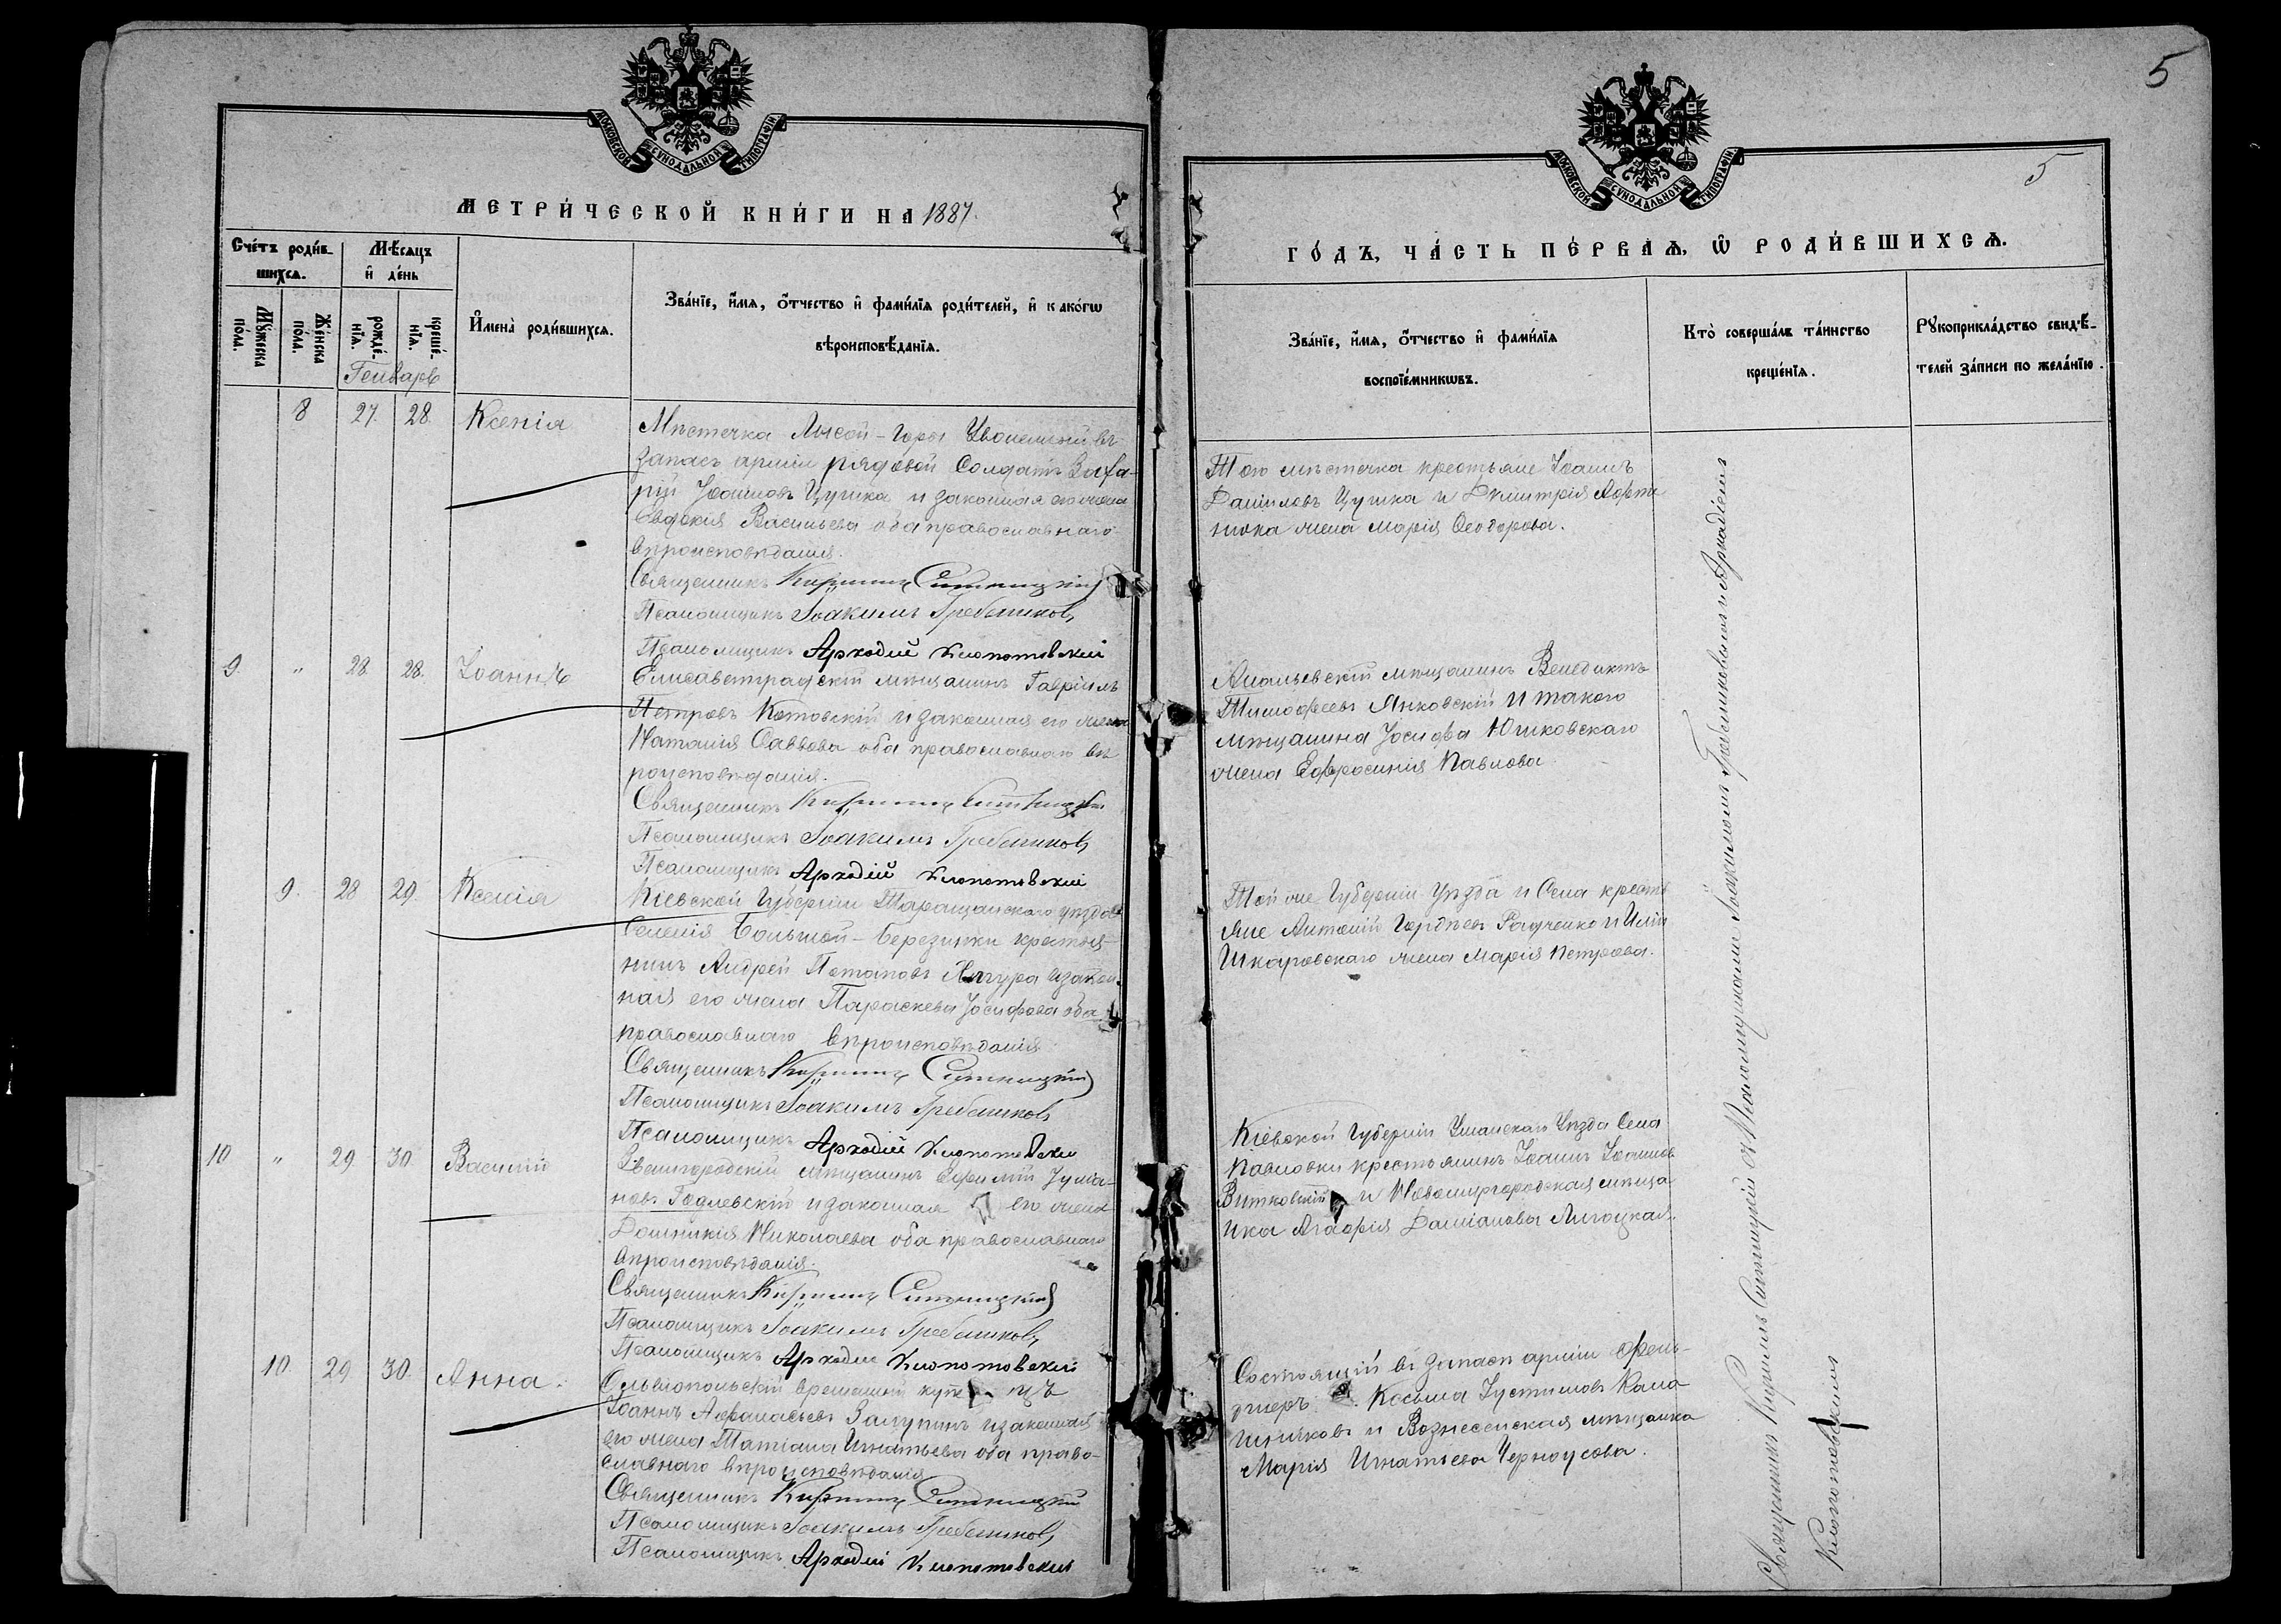 5
МОСКОВСКОЙ СѴНОДАЛЬНОЙ ТИПОГРАФІИ
МОСКОВСКОЙ СѴНОДАЛЬНОЙ ТИПОГРАФІИ
5
МЕТРИ́ЧЕСКОЙ КНИ́ГИ НА 1887.
ГО́ДЪ, ЧА́СТЬ ПЕ́РВАѦ, Ѡ҆ РОДИ́ВШИХСѦ.
Сче́тъ роди́в-
шихсѧ.
Мѣ́сѧцъ
и҆ де́нь
Мꙋ́жеска
по́ла.
Же́нска
по́ла.
рожде́-
нїѧ.
креще́-
нїѧ.
Генварь
И҆мена̀ роди́вшихсѧ.
Зва́нїе, и҆́мѧ, о҆́тчество и҆ фами́лїѧ роди́телей, и҆ како́гѡ
вѣроисповѣ́данїѧ.
Зва́нїе, и҆́мѧ, о҆́тчество и҆ фами́лїѧ
воспрїе́мникѡвъ.
Кто̀ соверша́лъ та́инство
креще́нїѧ.
Рꙋкоприкла́дство свидѣ́-
телей за́писи по жела́нїю.
8 27. 28. Ксенія
Мѣстечка Лысой-Горы Уволенный въ
запасъ арміи рядовой Солдатъ Заха-
рій Іоанновъ Цушка и законная его жена
Евдокія Васильева оба православнаго
вѣроисповѣданія.
Священникъ Кириллъ Ситницкій
Псаломщикъ Іоакимъ Гребенниковъ
Псаломщикъ Аркадій Клопотовскій
Того мѣстечка крестьяне Іоаннъ
Даниловъ Цушка и Димитрія
жена Марія Ѳеодорова.
9. " 28. 28. Іоаннъ
Елисаветградскій мѣщанинъ Гавріилъ
Петровъ Котовскій и законная его жена
Наталія Саввова оба православнаго вѣ
роисповѣданія.
Священникъ Кириллъ Ситницкій
Псаломщикъ Іоакимъ Гребенниковъ
Псаломщикъ Аркадій Клопотовскій
Ананьевскій мѣщанинъ Венедиктъ
Тимофеевъ Янковскій и такого
мѣщанина Іосифа Юшковскаго
жена Евфросинія Павлова
9. 28 29. Ксенія
Кіевской Губерніи Таращанскаго уѣзда
Селенія Большой-Березянки крестья-
нинъ Андрей Потаповъ и закон-
ная его жена Параскева Іосифова оба
православнаго вѣроисповѣданія
Священникъ Кириллъ Ситницкій
Псаломщикъ Іоакимъ Гребенниковъ
Псаломщикъ Аркадій Клопотовскій
Той же Губерніи уѣзда и Села кресть
яне Антоній Гордѣевъ Радченко и Иліи
Шкаровскаго жена Марія Петрова.
10 " 29 30. Василій
Звенигородскій мѣщанинъ Ефимій Іуліа-
новъ Годлевскій и законная его жена
Домникія Николаева оба православнаго
вѣроисповѣданія.
Священникъ Кириллъ Ситницкій
Псаломщикъ Іоакимъ Гребенниковъ
Псаломщикъ Аркадій Клопотовскій
Кіевской Губерніи Уманскаго Уѣзда Села
Павловки крестьянинъ Іоаннъ Іоанновъ
Витковскій и Новомиргородская мѣща
нка Агафія Даміанова
10. 29 30. Анна.
Ольвіопольскій временный купецъ
Іоаннъ Афанасьевъ Залупинъ и законная
его жена Татіана Игнатьева оба право-
славнаго вѣроисповѣданія
Священникъ Кириллъ Ситницкій
Псаломщикъ Іоакимъ Гребенниковъ
Псаломщикъ Аркадій Клопотовскій
Состоящій въ запасѣ арміи фель-
дшеръ Косьма Іустиновъ Кала
шниковъ и Вознесенская мѣщанка
Марія Игнатьева Черноусова.
Священникъ Кириллъ Ситницкій съ Псаломщиками Іоакимомъ Гребенниковымъ и Аркадіемъ
Клопотовскимъ